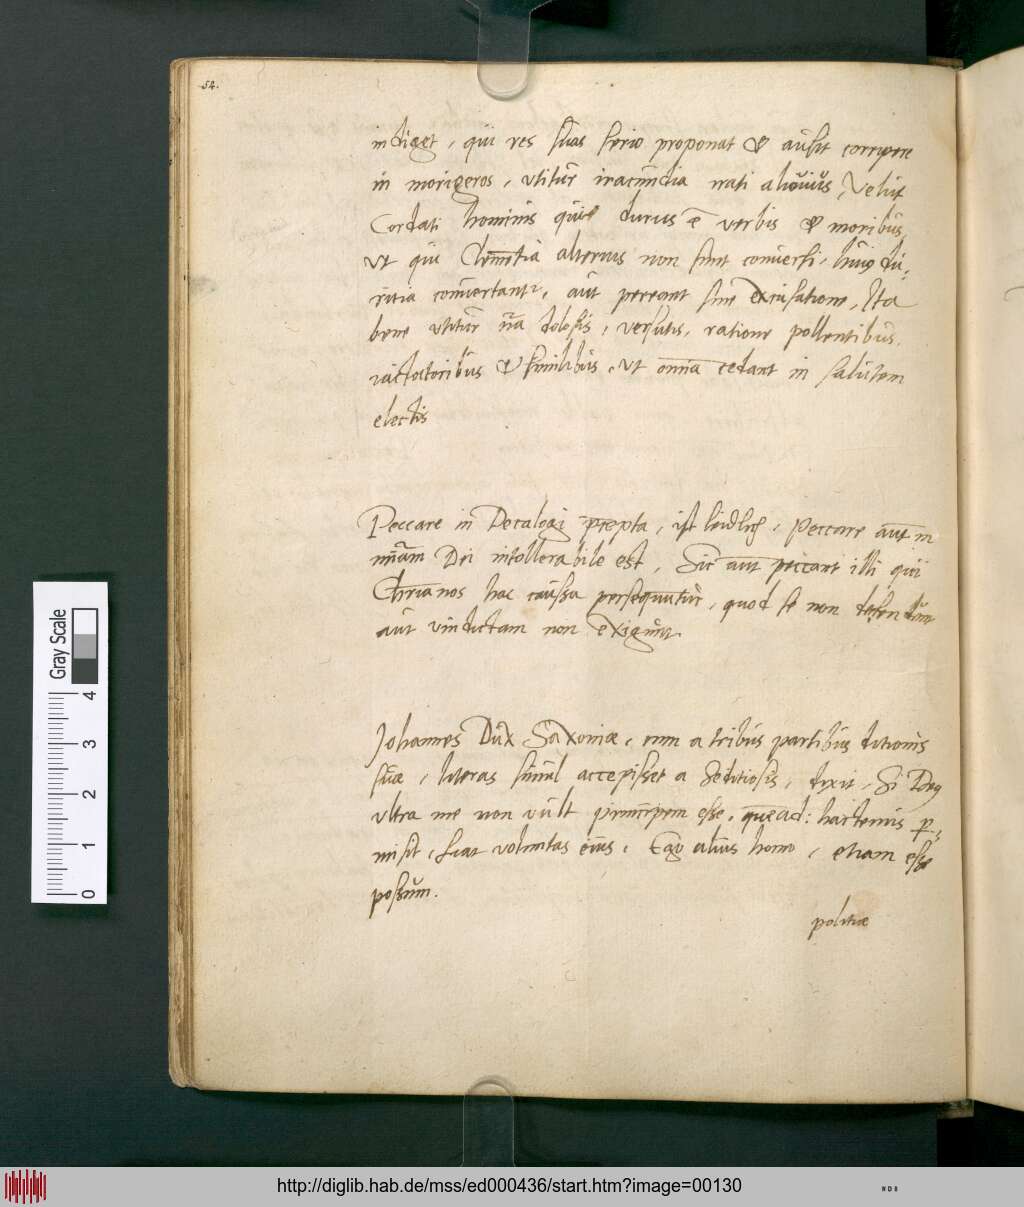 52.
indiget, qui res suas serio proponat & ausit corripere
in morigeros, utitur iracundia nati alicuius, Velut
Cordati hominis quie durus ē verbis & moribus,
ut qui clemētia alterius non sunt conuersi, huiꝰ du„
ritia conuertantr, aut pereant sine excusatione, Ita
bene utitur nr̄a dolosis, versutis, ratione pollentibus,
iactatoribus & similibus, ut omnia cedant in salutem
electis
Peccare in Decalogi p̄cepta, ist leidlich, Peccare aut̄ in
mīam Dei intollerabile est, Sic aut̄ peccant illi qui
Chr̄ianos hac caussa persequutur, quod se non defendūt
aut vindictam non exigunt.
Johannes Dux Saxoniæ, cum a tribus partibus ditionis
suæ, literas simul accepisset a seditiosis, dixit, Si Deꝰ
ultra me non vult principem esse, quēad: hactenus ꝑ„
misit, fiat voluntas eius, Ego alius homo, etiam esse
possum.
politiæ
Gray Scale
0 1 2 3 4
http://diglib.hab.de/mss/ed000436/start.htm?image=00130